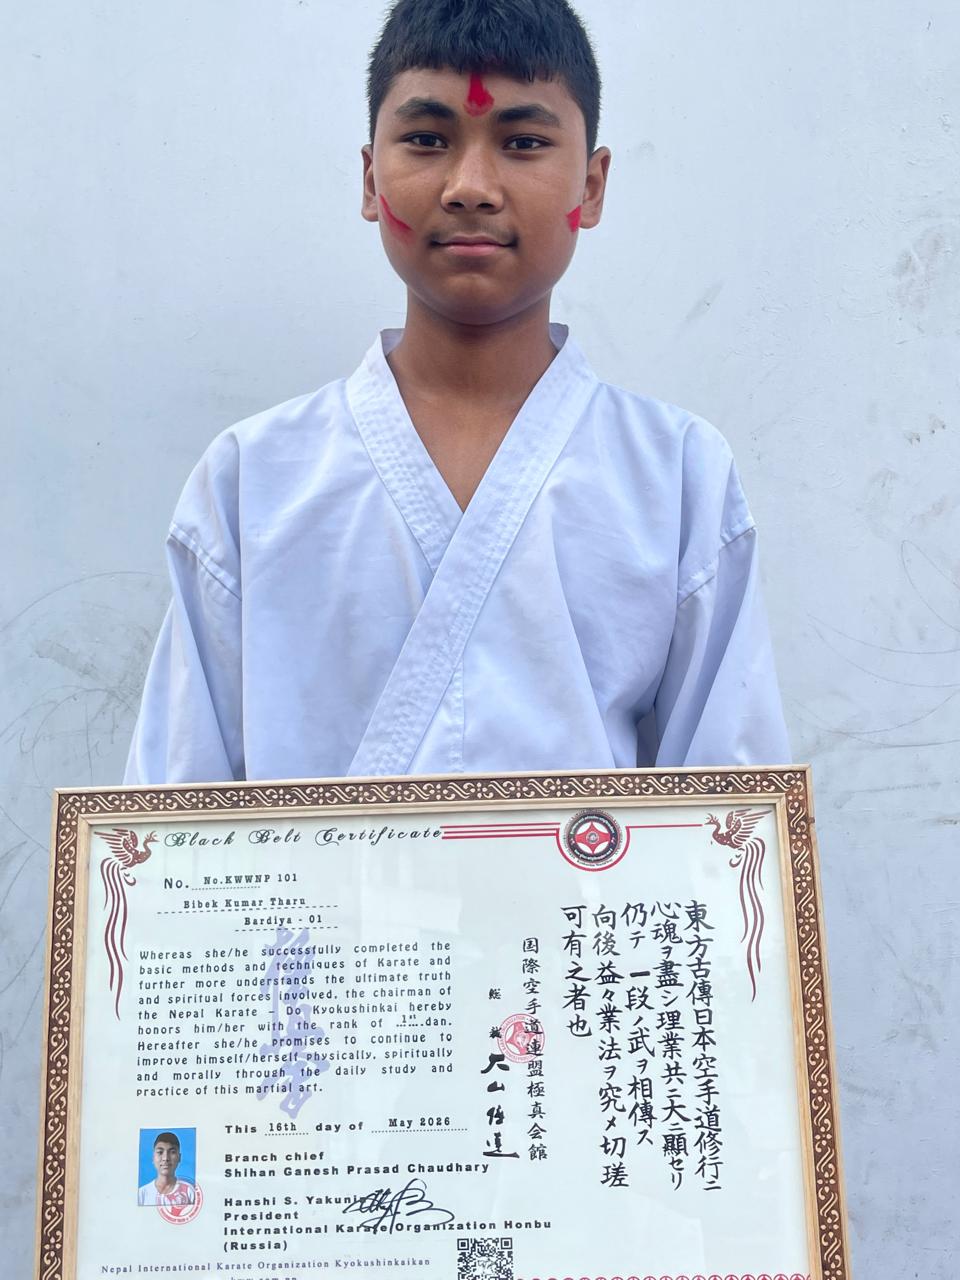 Black Belt Certificate
No. No.KWWNP 101
Bibek Kumar Tharu
Bardiya - 01
Whereas she/he successfully completed the
basic methods and techniques of Karate and
further more understands the ultimate truth
and spiritual forces involved, the chairman of
the Nepal Karate - Do Kyokushinkai hereby
honors him/her with the rank of 1st dan.
Hereafter she/he promises to continue to
improve himself/herself physically, spiritually
and morally through the daily study and
practice of this martial art.
This 16th day of May 2026
Branch chief
Shihan Ganesh Prasad Chaudhary
Hanshi S. Yakunin
President
International Karate Organization Honbu
(Russia)
Nepal International Karate Organization Kyokushinkaikan
東方古傳日本空手道修行ニ
心魂ヲ盡シ理業共ニ大ニ顯セリ
仍テ一段ノ武ヲ相傳ス
向後益々業法ヲ究メ切瑳
可有之者也
国際空手道連盟極真会館
総裁 大山倍達
極真会